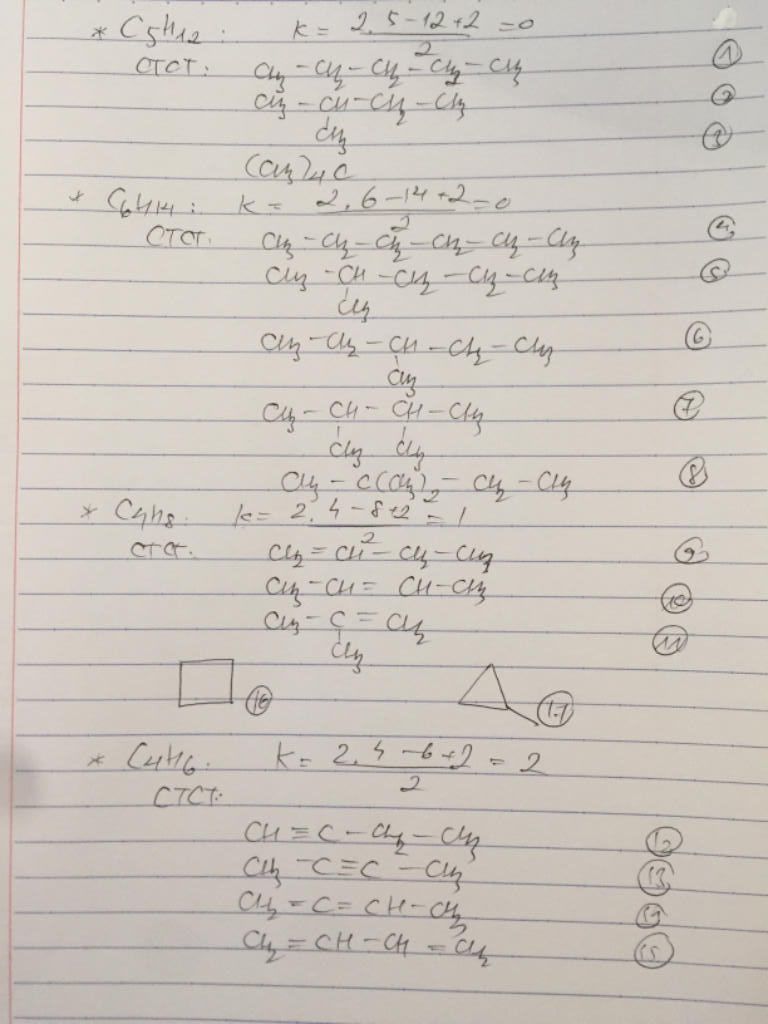 * C5H12 : k = (2.5-12+2)/2 =0
CTCT: CH3 -CH2 -CH2 -CH2 -CH3 ①
CH3 -CH-CH2 -CH3 ②
CH3 ③
(CH3)4C
* C6H14 : k = (2.6-14+2)/2 =0
CTCT: CH3 -CH2 -CH2 -CH2 -CH2 -CH3 ④
CH3 -CH -CH2 -CH2 -CH3 ⑤
CH3
CH3 -CH2 -CH -CH2 -CH3 ⑥
CH3
CH3 -CH -CH -CH3 ⑦
CH3 CH3
CH3 -C(CH3)2 -CH2 -CH3 ⑧
* C4H8: k= (2.4-8+2)/2 = 1
CTCT: CH2 = CH -CH2 -CH3 ⑨
CH3 -CH = CH-CH3 ⑩
CH3 -C = CH2 ⑪
CH3
⑯ ⑰
* C4H6: k= (2.4-6+2)/2 = 2
CTCT:
CH ≡ C -CH2 -CH3 ⑫
CH3 -C≡C -CH3 ⑬
CH2 = C = CH -CH3 ⑭
CH2 = CH -CH = CH2 ⑮